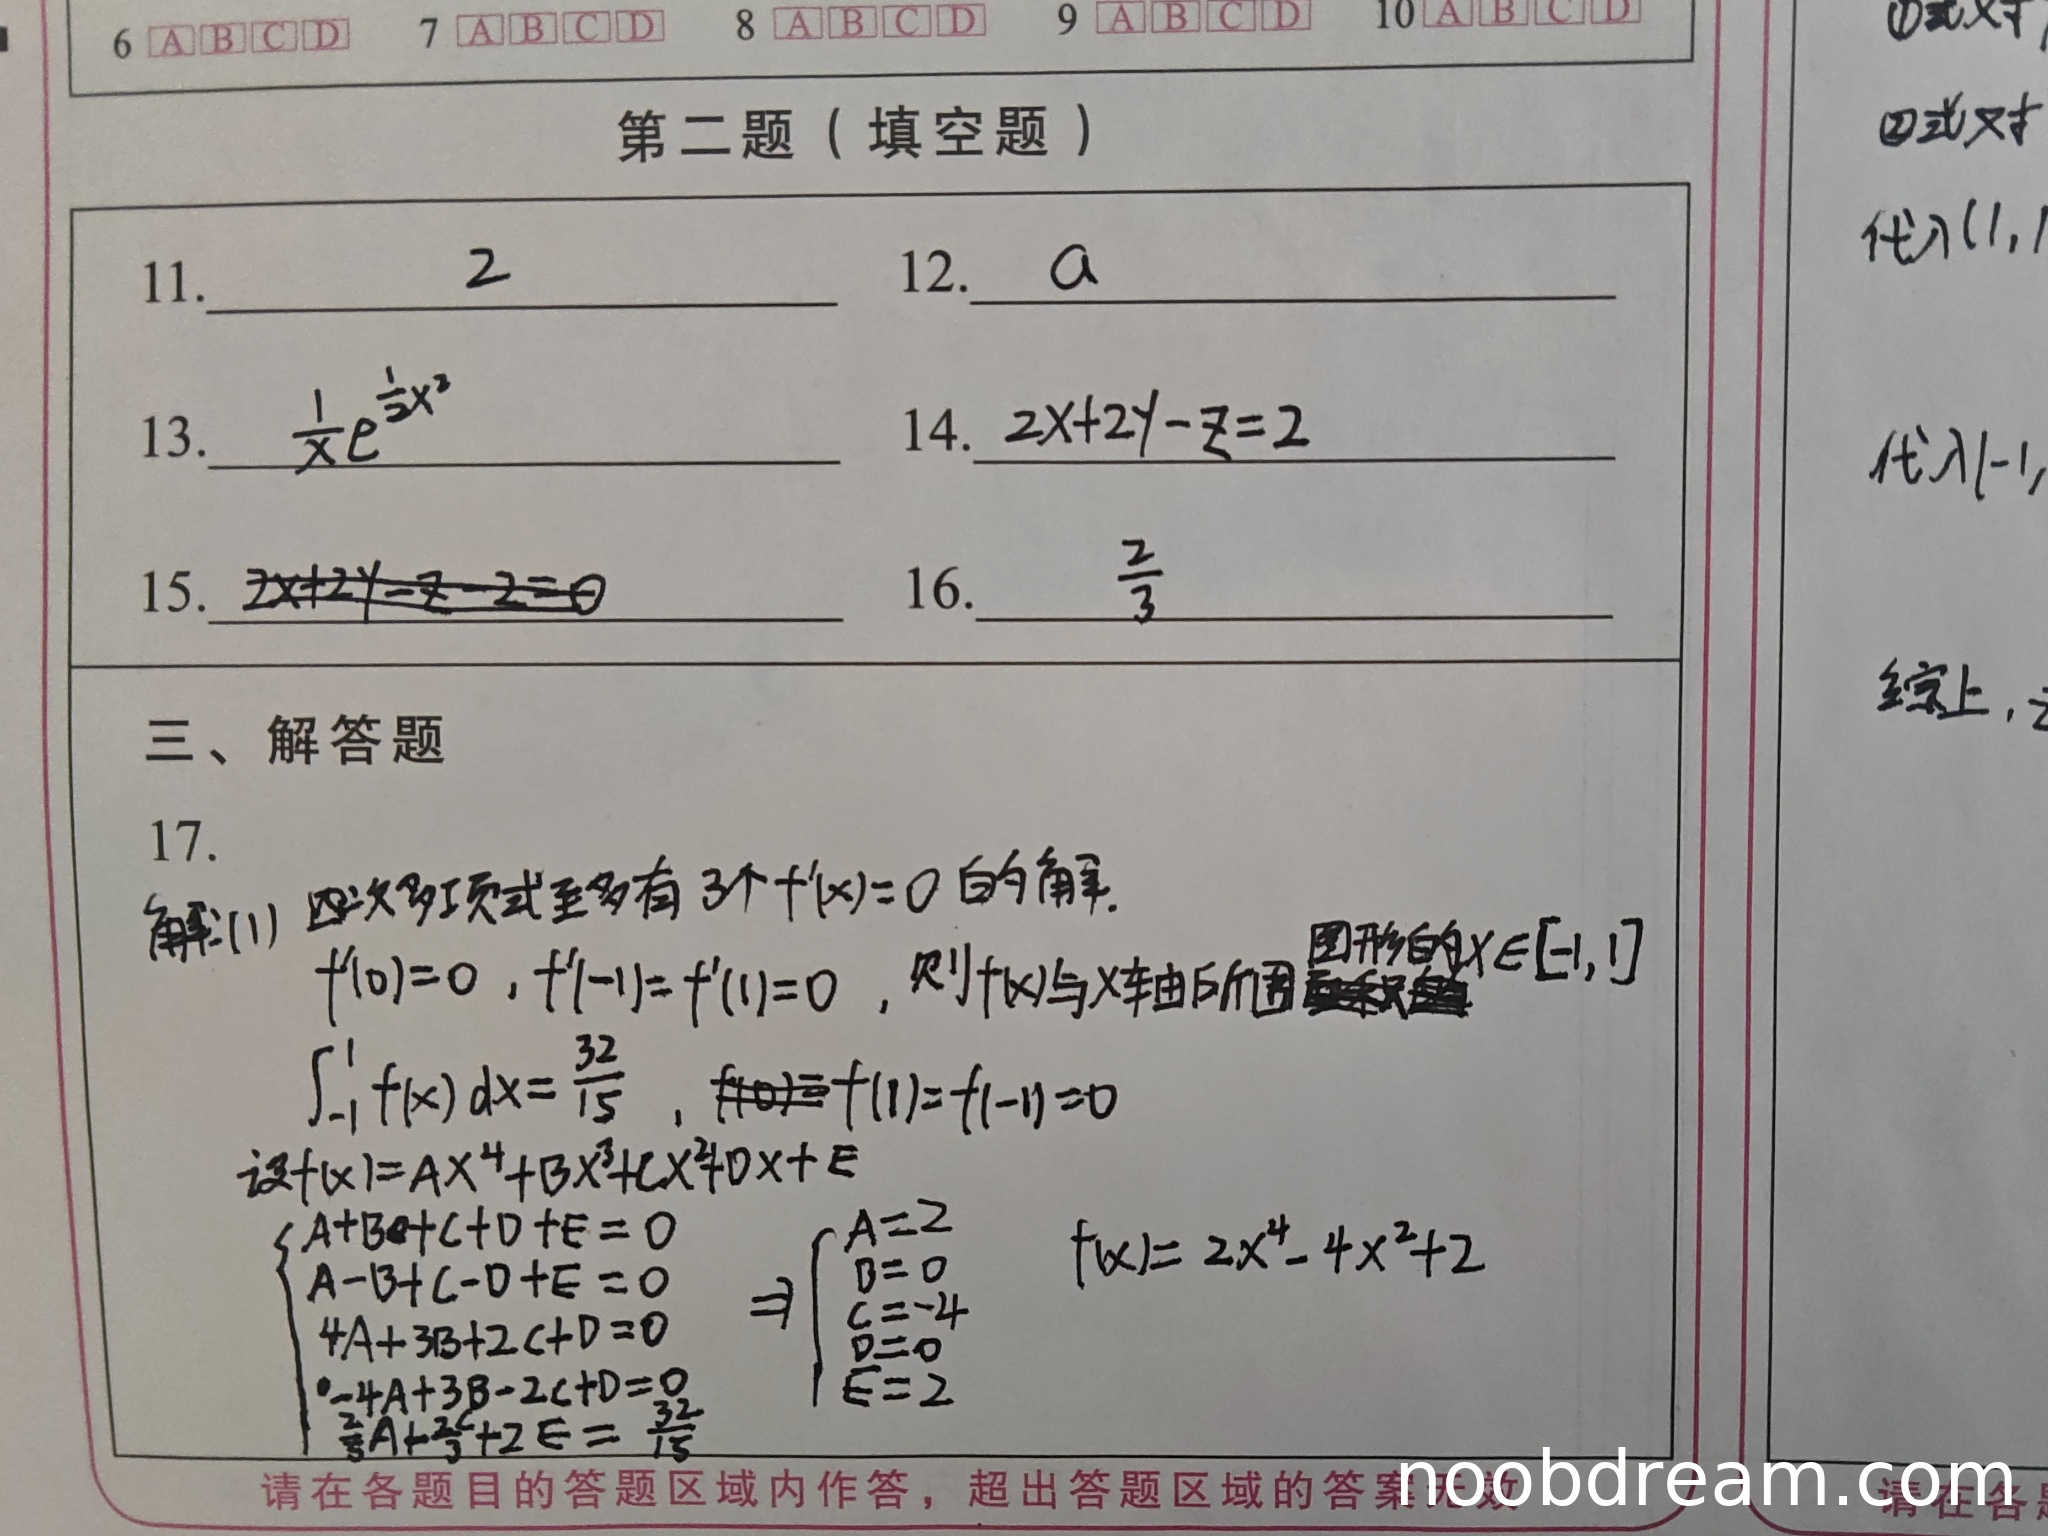 6 [A] [B] [C] [D] 7 [A] [B] [C] [D] 8 [A] [B] [C] [D] 9 [A] [B] [C] [D] 10 [A] [B] [C] [D]
第二题（填空题）
11. 2 12. a
13. 1/x e^{1/2 x²} 14. 2x+2y-z=2
15. 2x+2y-z-2=0 16. 2/3
三、解答题
17.
解:(1) 四次多项式至多有3个f'(x)=0的解.
f'(0)=0, f'(-1)=f'(1)=0, 则f(x)与x轴所围图形的x∈[-1,1]
∫_{-1}^{1} f(x)dx=32/15, f(1)=f(-1)=0
设f(x)=Ax⁴+Bx³+Cx²+Dx+E
A+B+C+D+E=0
A-B+C-D+E=0
4A+3B+2C+D=0
-4A+3B-2C+D=0
2/5A+2C/3+2E=32/15
⇒
A=2
B=0
C=-4
D=0
E=2
f(x)=2x⁴-4x²+2
请在各题目的答题区域内作答，超出答题区域的答案无效
①式对
②式对
代入(1,1
代入(-1,
综上,
请在各题
noobdream.com